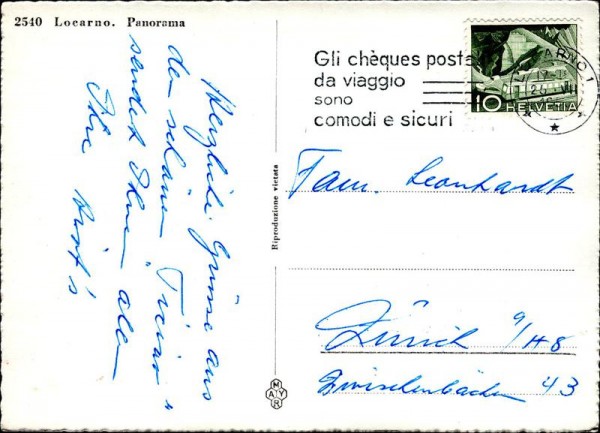 2540 Locarno. Panorama
Herzliche Grüsse aus
dem schönen Ticino
sendet Ihnen allen
Ihre
Riproduzione vietata
MAYR
Gli chèques postali
da viaggio
sono
comodi e sicuri
ARNO 1
10 HELVETIA
Fam. Leonhardt
Zürich 9/48
Zwischenbächen 43